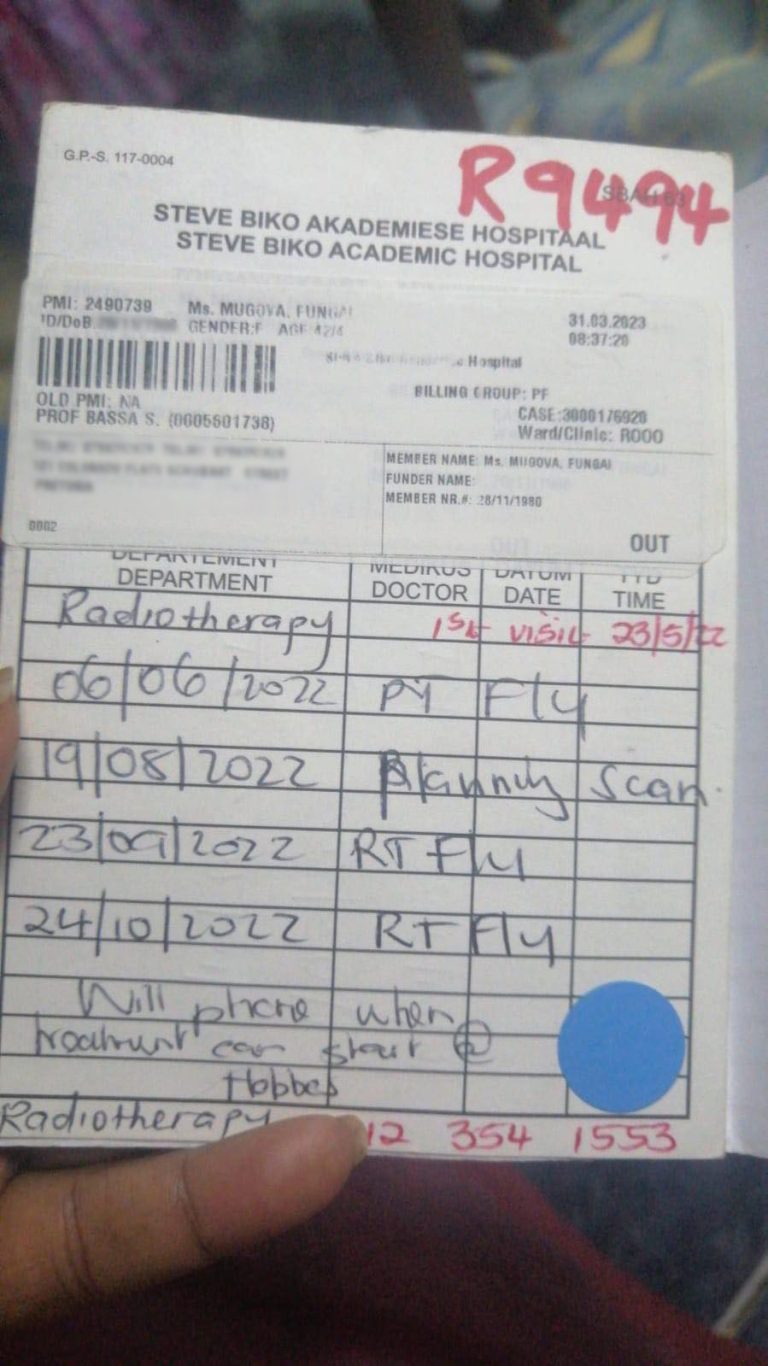 G.P.-S. 117-0004
R9494
SBAH 63
STEVE BIKO AKADEMIESE HOSPITAAL
STEVE BIKO ACADEMIC HOSPITAL
PMI: 2490739 Ms. MUGOVA, FUNGAI
31.03.2023
ID/DoB: GENDER:F AGE 42/4
08:37:20
Hospital
BILLING GROUP: PF
OLD PMI: NA
CASE:3000176920
PROF BASSA S. (0005501738)
Ward/Clinic: ROOO
MEMBER NAME: Ms. MUGOVA, FUNGAI
FUNDER NAME:
MEMBER NR.#: 28/11/1980
0002
OUT
DEPARTEMENT MEDIKUS DATUM TYD
DEPARTMENT DOCTOR DATE TIME
Radiotherapy 1st visit 23/5/22
06/06/2022 Fly
19/08/2022 Planning Scan.
23/09/2022 RT Flu
24/10/2022 RT Fly
Will phone when
treatment can start @
Radiotherapy 12 354 1553